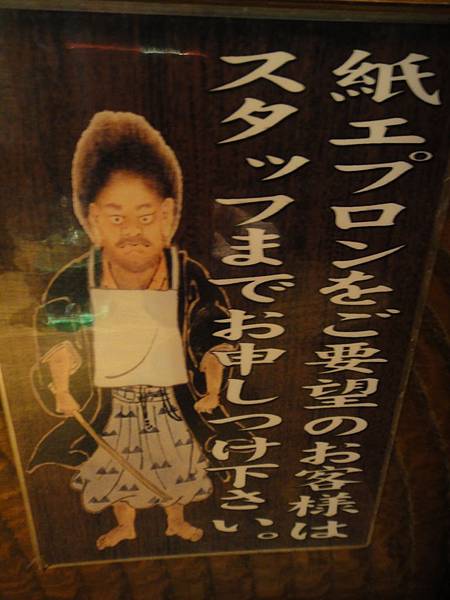 紙エプロンをご要望のお客様は
スタッフまでお申しつけ下さい。